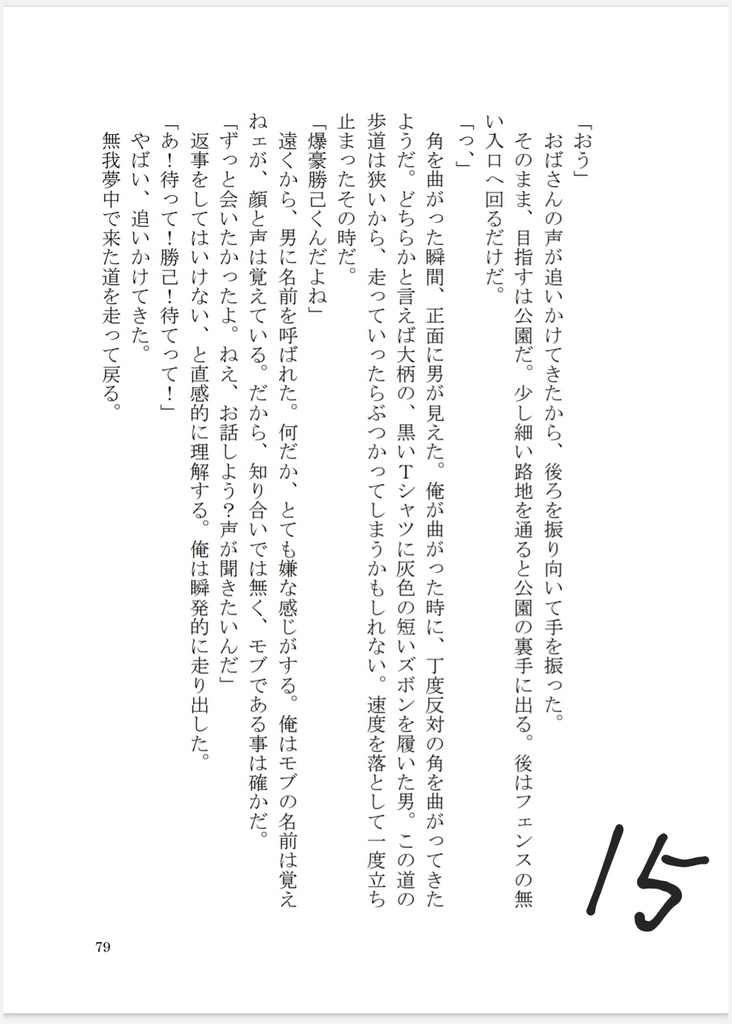 「おう」
おばさんの声が追いかけてきたから、後ろを振り向いて手を振った。
そのまま、目指すは公園だ。少し細い路地を通ると公園の裏手に出る。後はフェンスの無
い入口へ回るだけだ。
「っ、」
角を曲がった瞬間、正面に男が見えた。俺が曲がった時に、丁度反対の角を曲がってきた
ようだ。どちらかと言えば大柄の、黒いTシャツに灰色の短いズボンを履いた男。この道の
歩道は狭いから、走っていったらぶつかってしまうかもしれない。速度を落として一度立ち
止まったその時だ。
「爆豪勝己くんだよね」
遠くから、男に名前を呼ばれた。何だか、とても嫌な感じがする。俺はモブの名前は覚え
ねェが、顔と声は覚えている。だから、知り合いでは無く、モブである事は確かだ。
「ずっと会いたかったよ。ねえ、お話しよう？声が聞きたいんだ」
返事をしてはいけない、と直感的に理解する。俺は瞬発的に走り出した。
「あ！待って！勝己！待てって！」
やばい、追いかけてきた。
無我夢中で来た道を走って戻る。
15
79